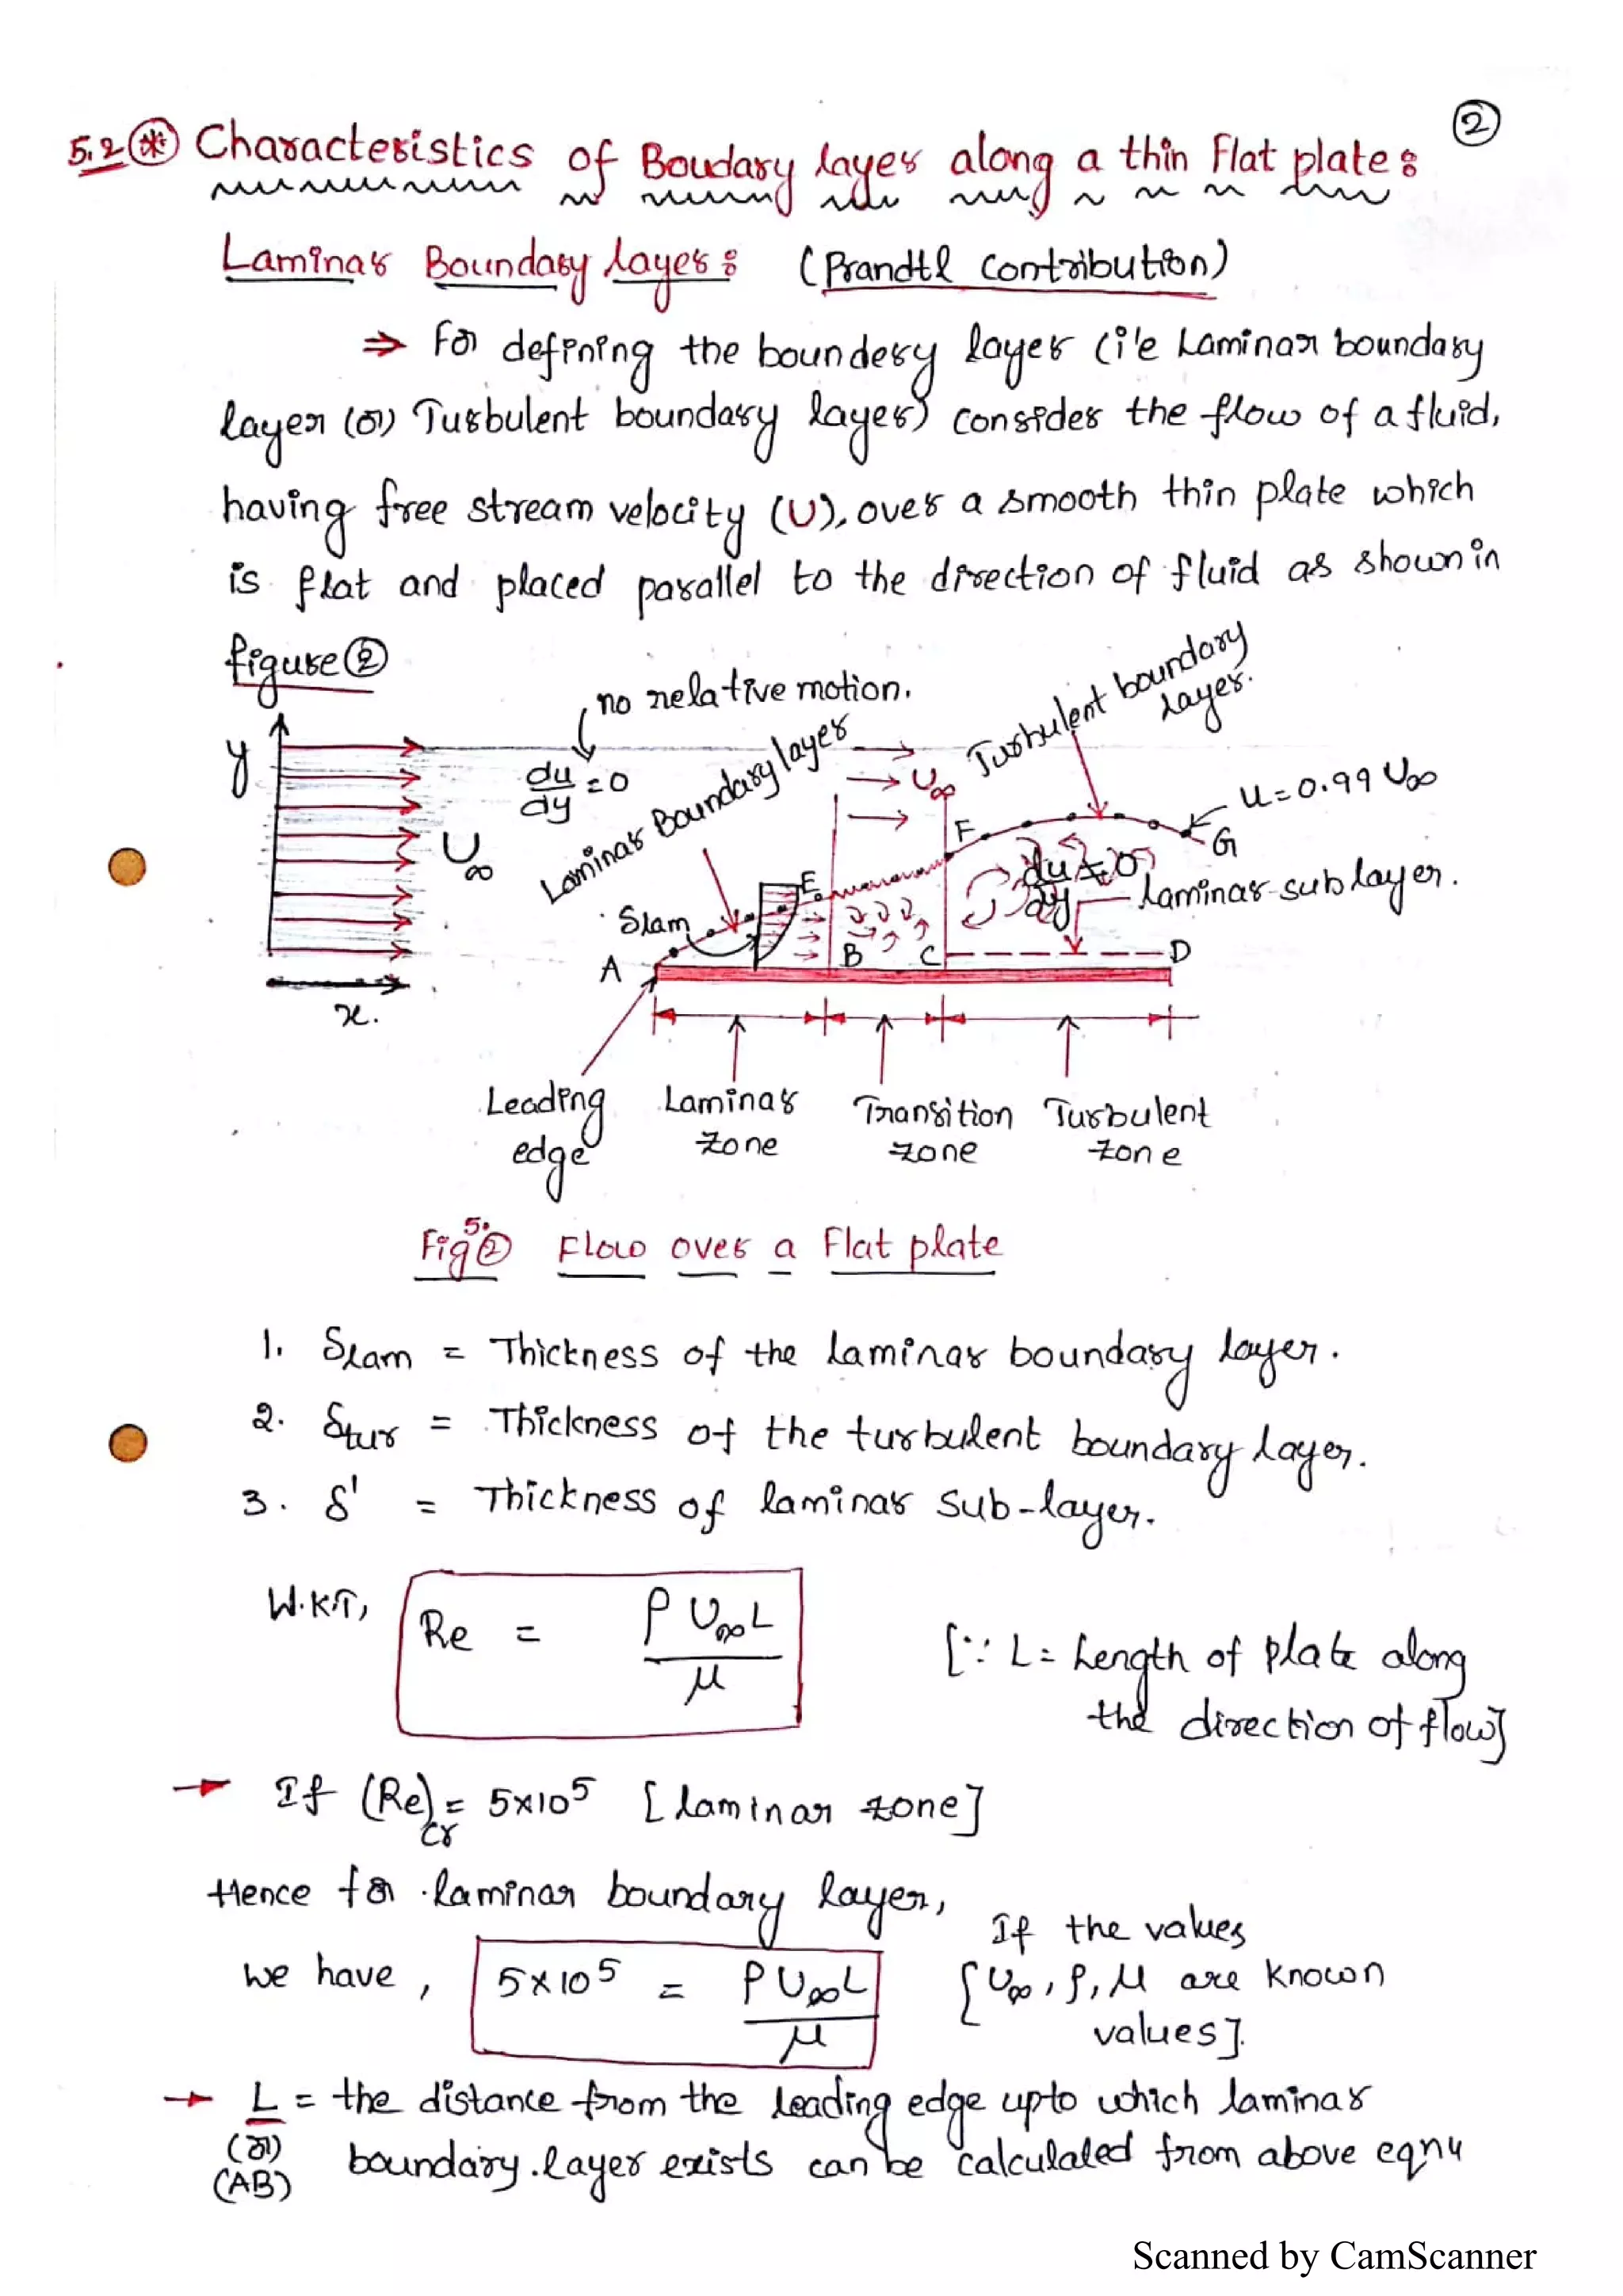 ②
5.2 * Characteristics of Boudary layer along a thin Flat plate :
Laminar Boundary layer : (Prandtl contribution)
⇒ For defining the boundery layer (i'e Laminar boundary
layer (or) Turbulent boundary layer) consider the flow of a fluid,
having free stream velocity (U), over a smooth thin plate which
is flat and placed parallel to the direction of fluid as shown in
figure ②
no relative motion.
Turbulent boundary
layer.
y
du/dy = 0
Laminar Boundary layer
U∞
U∞
u = 0.99 U∞
F
G
E
du/dy ≠ 0
Laminar-sub layer.
δlam
A
B
C
D
x.
Leading
edge
Laminar
zone
Transition
zone
Turbulent
zone
Fig 5.② Flow over a Flat plate
1. δlam = Thickness of the laminar boundary layer.
2. δtur = Thickness of the turbulent boundary layer.
3. δ' = Thickness of laminar sub-layer.
W.K.T, Re = ρ U∞ L / μ
[∵ L = Length of plate along
the direction of flow]
→ If (Re)cr = 5×10⁵ [laminar zone]
Hence for laminar boundary layer,
we have, 5×10⁵ = ρ U∞ L / μ
If the values
[U∞, ρ, μ are known
values].
→ L = the distance from the leading edge upto which laminar
(or)
(AB) boundary layer exists can be calculated from above eqn4
Scanned by CamScanner